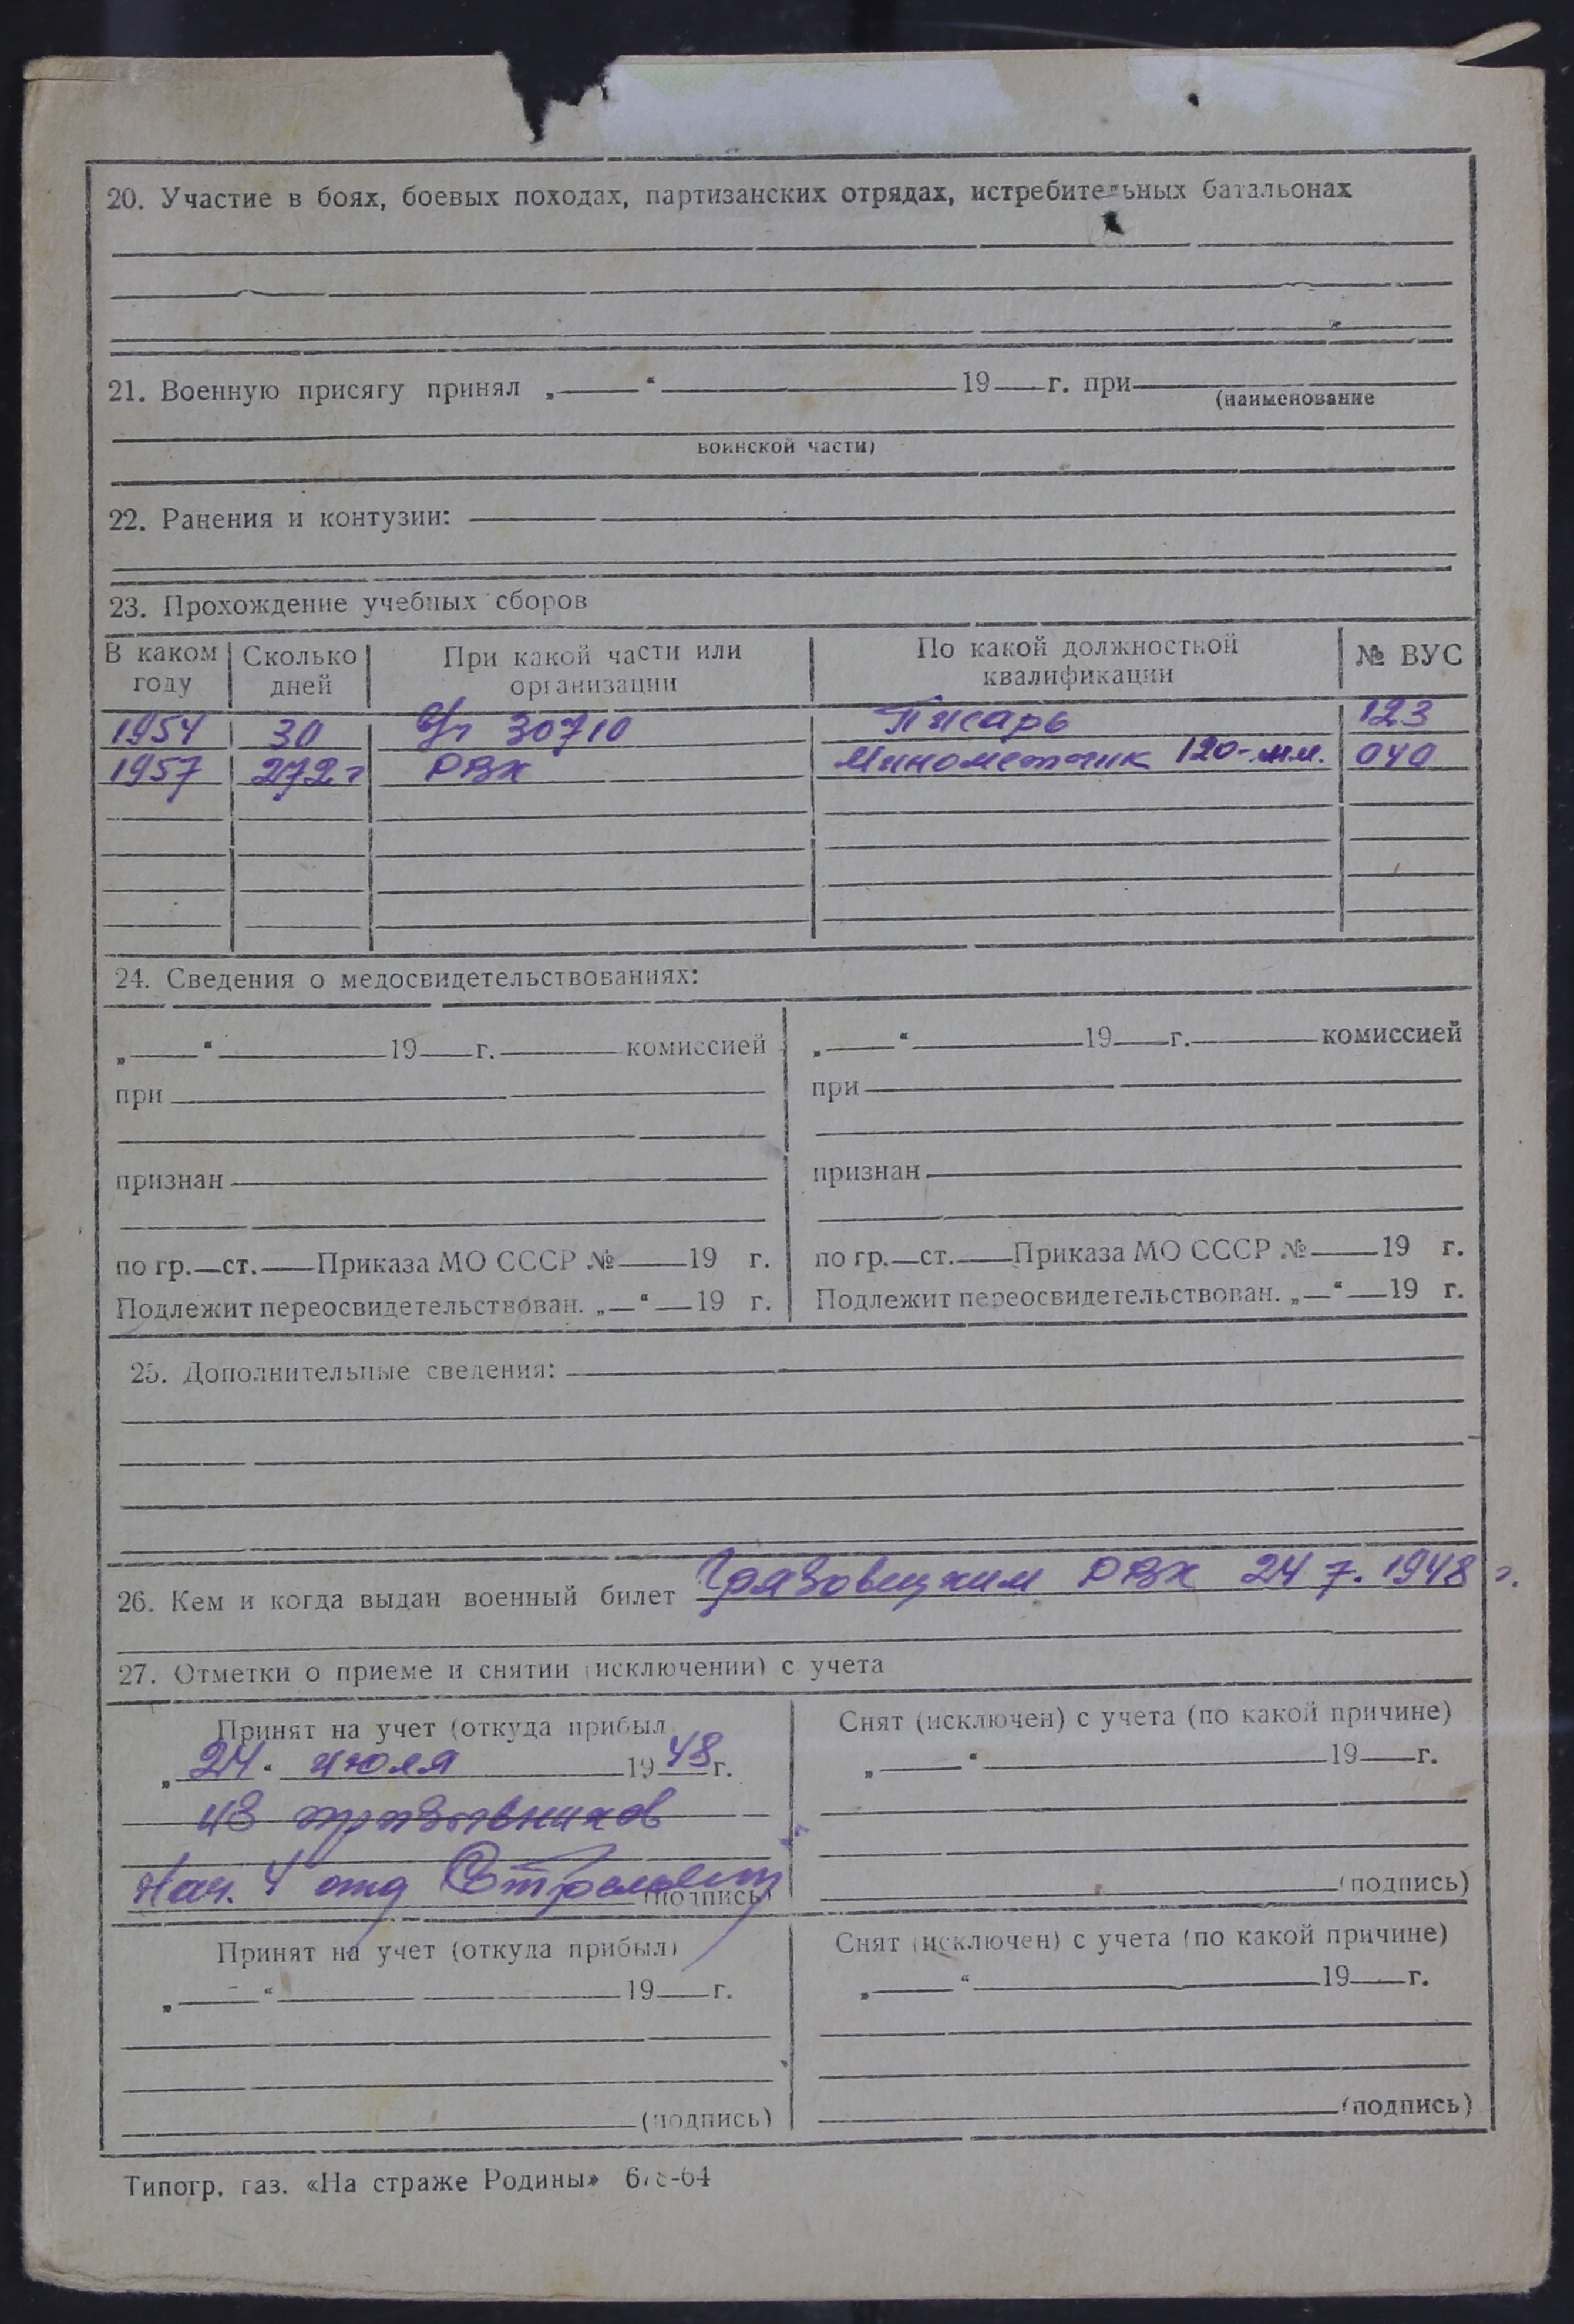 20. Участие в боях, боевых походах, партизанских отрядах, истребительных батальонах
21. Военную присягу принял „ “ 19 г. при
(наименование
воинской части)
22. Ранения и контузии:
23. Прохождение учебных сборов
В каком году Сколько дней При какой части или организации По какой должностной квалификации № ВУС
1954 30 30710 Писарь 123
1957 272 г РВК Минометчик 120-мм. 040
24. Сведения о медосвидетельствованиях:
„ “ 19 г. комиссией „ “ 19 г. комиссией
при при
признан признан
по гр. ст. Приказа МО СССР № 19 г. по гр. ст. Приказа МО СССР № 19 г.
Подлежит переосвидетельствован. „ “ 19 г. Подлежит переосвидетельствован. „ “ 19 г.
25. Дополнительные сведения:
26. Кем и когда выдан военный билет Грязовецким РВК 24 7. 1948 г.
27. Отметки о приеме и снятии (исключении) с учета
Принят на учет (откуда прибыл Снят (исключен) с учета (по какой причине)
„24“ июля 1948 г. „ “ 19 г.
из призывников
Нач. 4 отд (подпись) (подпись)
Принят на учет (откуда прибыл) Снят (исключен) с учета (по какой причине)
„ “ 19 г. „ “ 19 г.
(подпись) (подпись)
Типогр. газ. «На страже Родины»